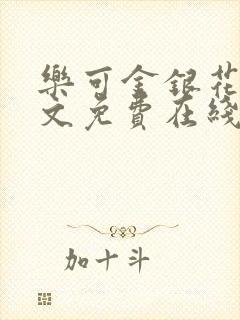 樂可金銀花
文免費在綫
加十斗